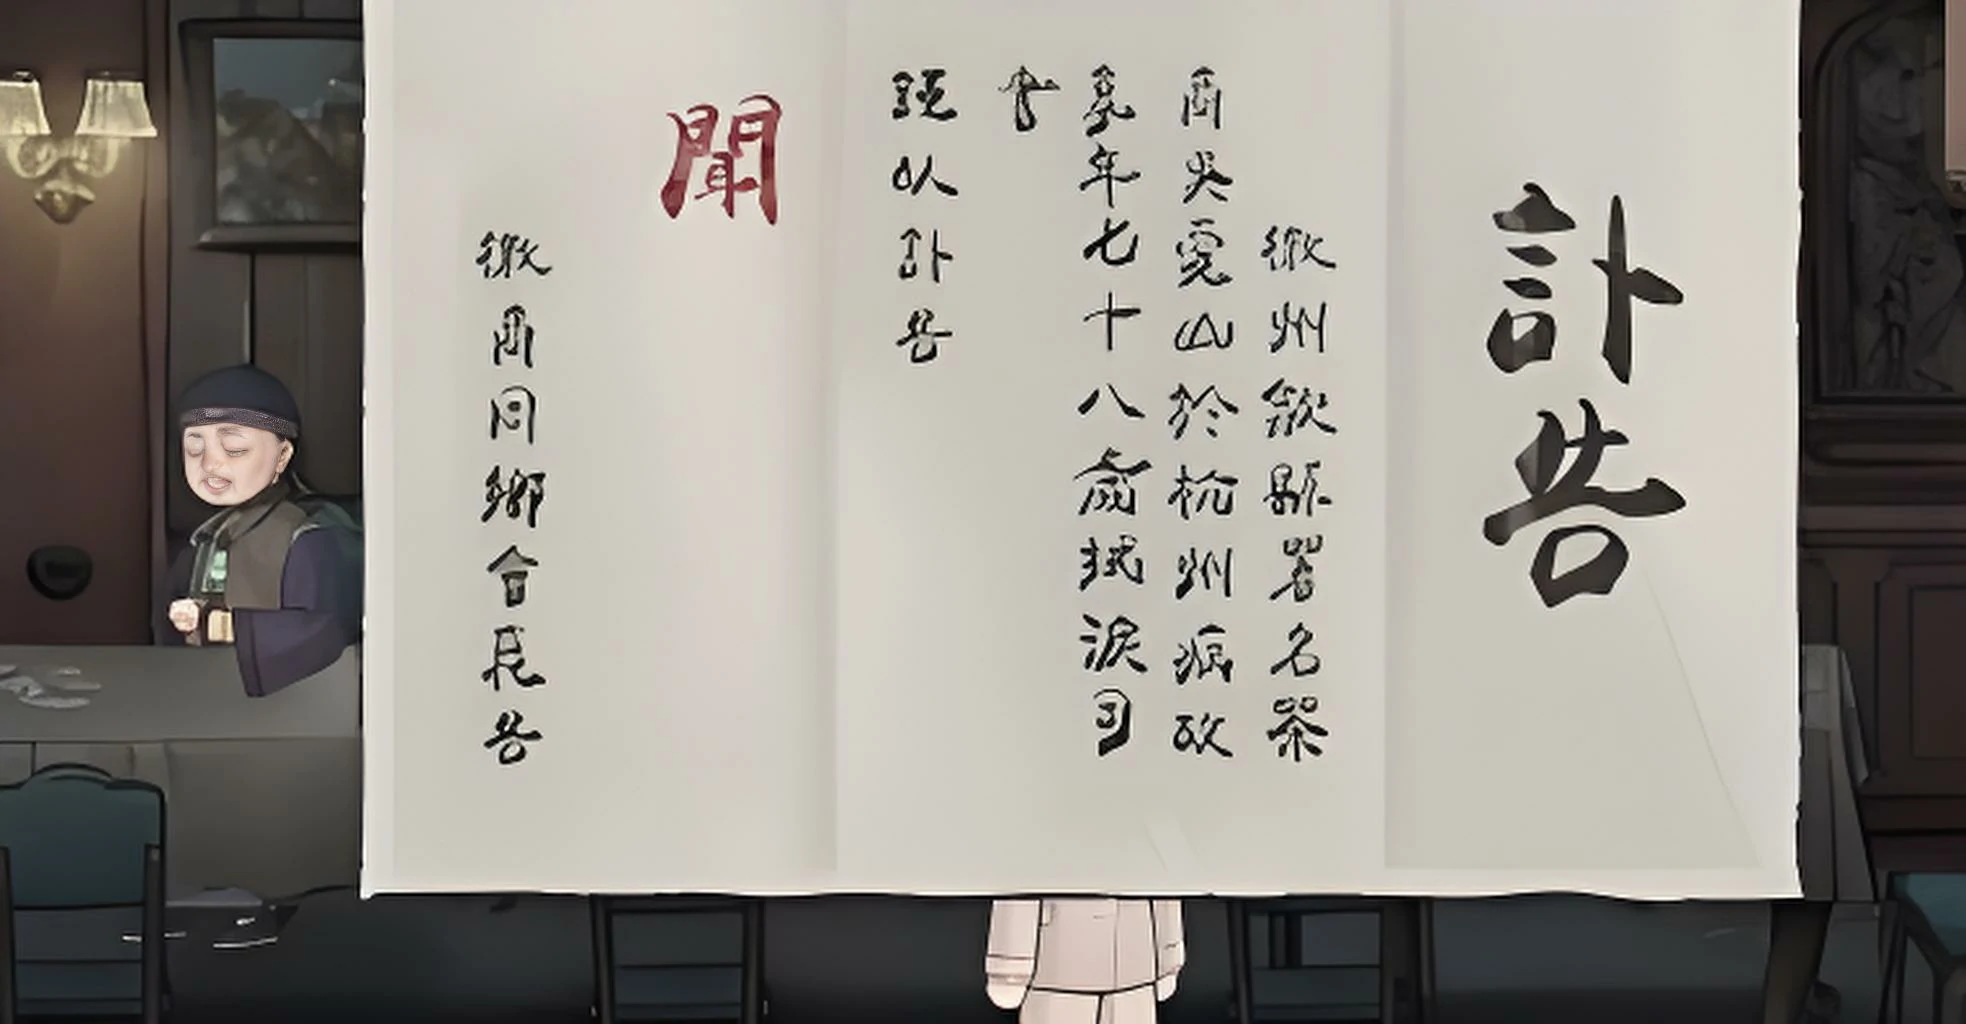 訃告
徽州歙縣著名茶
商吳雲山於杭州病故
享年七十八歲拭淚司
以訃告
聞
徽商同鄉會告